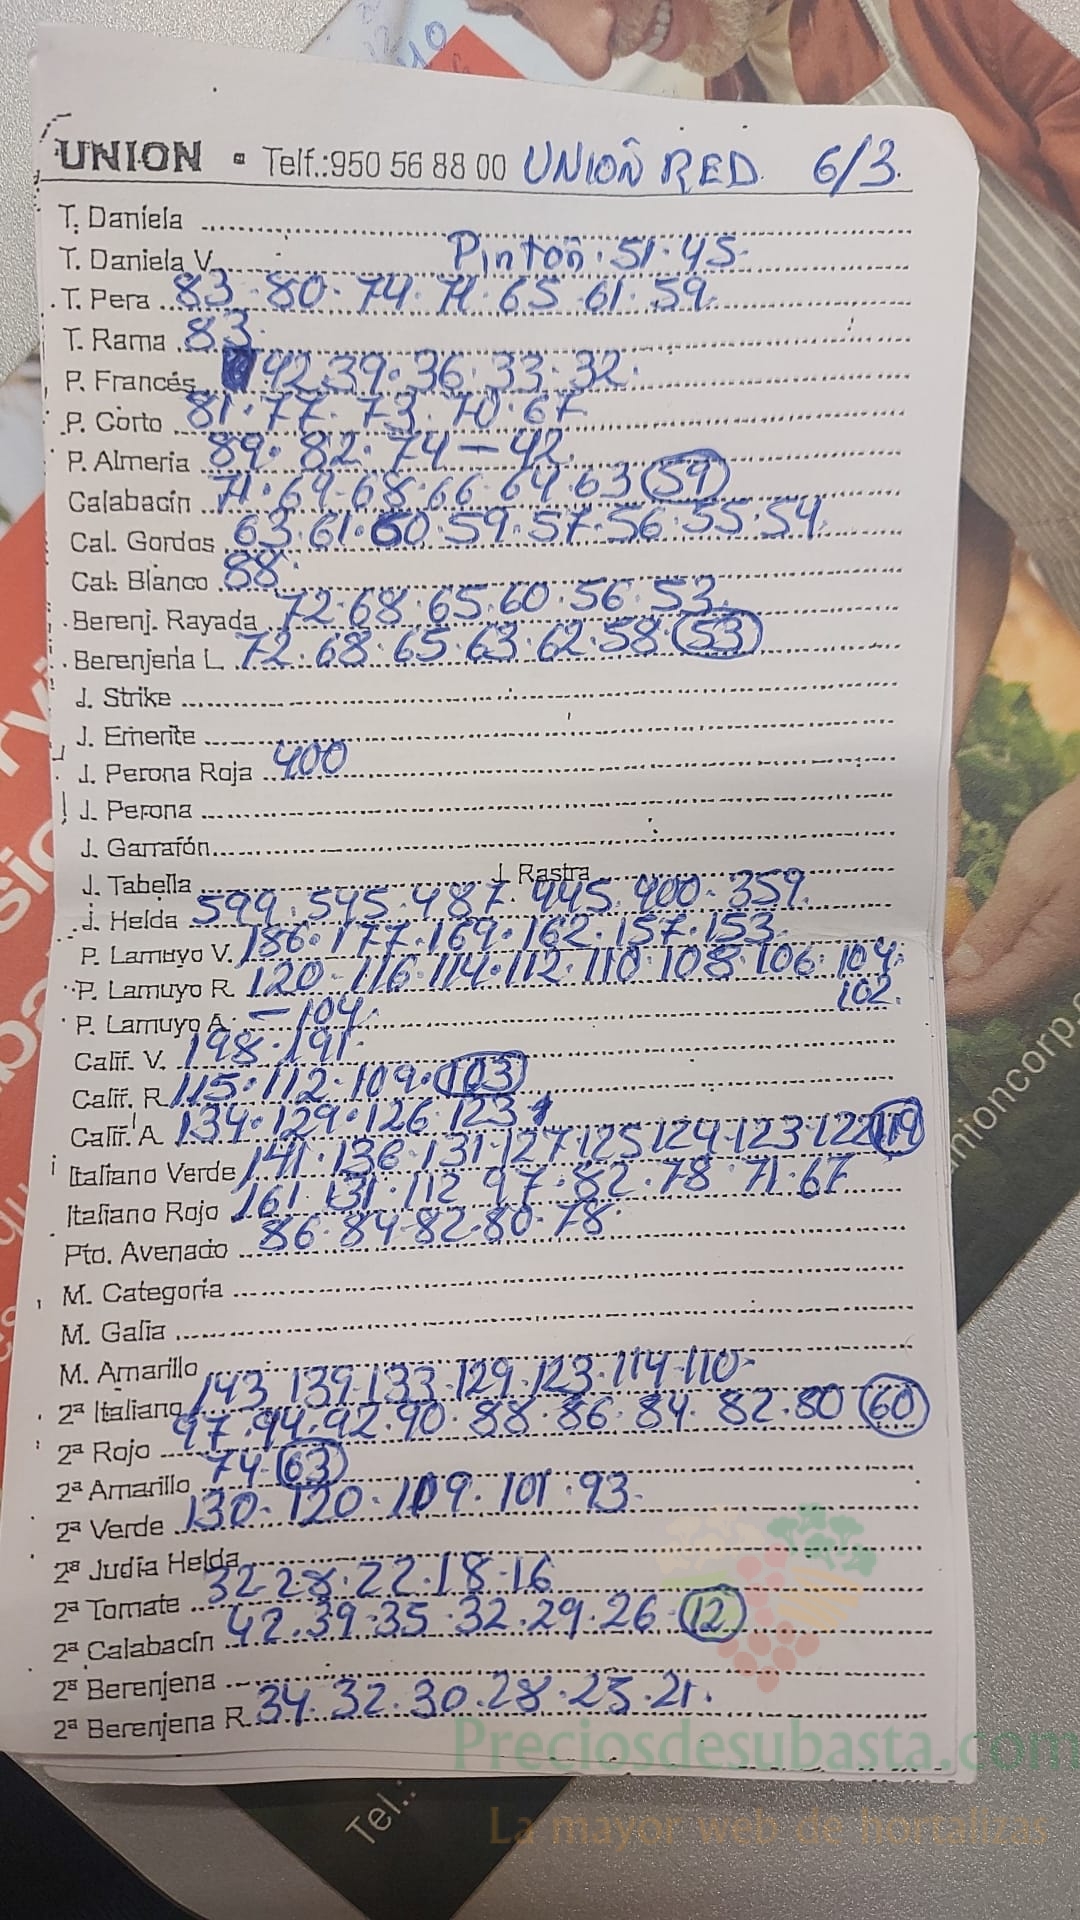 UNION • Telf.:950 56 88 00 UNION RED. 6/3.
T. Daniela
T. Daniela V. Pinton. 51. 45.
T. Pera 83. 80. 74. 71. 65. 61. 59.
T. Rama 83.
P. Francés 42. 39. 36. 33. 32.
P. Corto 81. 77. 73. 70. 67
P. Almeria 89. 82. 74 - 42.
Calabacín 71. 69. 68. 66. 64. 63 59
Cal. Gordos 63. 61. 60. 59. 57. 56. 55. 54.
Cal. Blanco 88.
Berenj. Rayada 72. 68. 65. 60. 56. 53.
Berenjena L. 72. 68. 65. 63. 62. 58. 53
J. Strike
J. Emerite
J. Perona Roja 400
J. Perona
J. Garrafón
J. Tabella J. Rastra
J. Helda 599. 545. 487. 445. 400. 359.
P. Lamuyo V. 186. 177. 169. 162. 157. 153.
P. Lamuyo R. 120. 116. 114. 112. 110. 108. 106. 104.
102.
P. Lamuyo A. - 104.
Calif. V. 198. 191.
Calif. R. 115. 112. 109. 103
Calif. A. 134. 129. 126. 123
Italiano Verde 141. 136. 131. 127 125 124. 123. 122 119
Italiano Rojo 161. 131. 112 97. 82. 78. 71. 67
Pto. Avenado 86. 84. 82. 80. 78.
M. Categoría
M. Galia
M. Amarillo
2ª Italiano 143. 139. 133. 129. 123. 114. 110.
2ª Rojo 97. 94. 92. 90. 88. 86. 84. 82. 80 60
2ª Amarillo 74. 63
2ª Verde 130. 120. 109. 101. 93.
2ª Judía Helda
2ª Tomate 32 28. 22. 18. 16
2ª Calabacín 42. 39. 35. 32. 29. 26. 12
2ª Berenjena
2ª Berenjena R. 34. 32. 30. 28. 25. 21.
Preciosdesubasta.com
La mayor web de hortalizas
unioncorp.
Tel.: